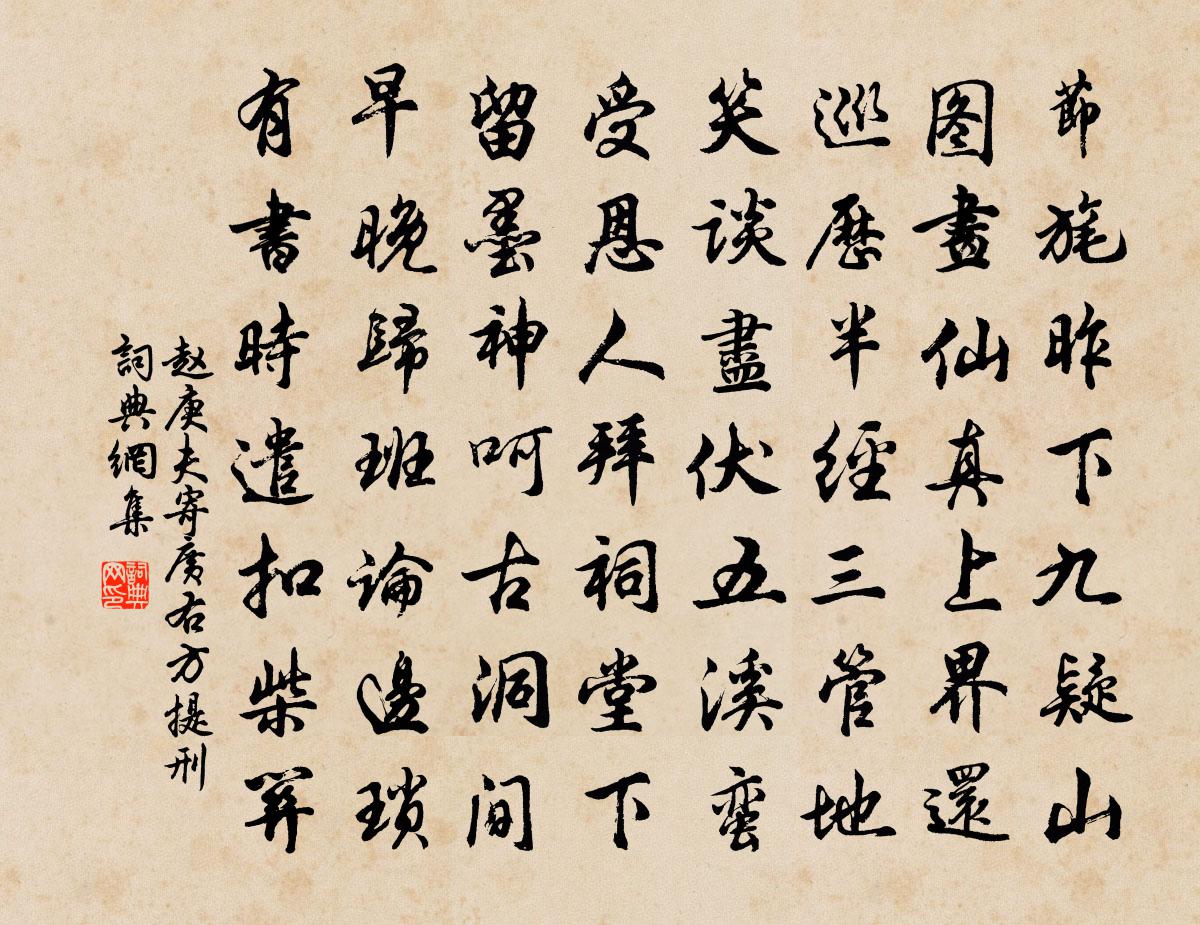 節旄昨下九疑山
图畫仙真上界還
巡歷半經三管地
笑談盡伏五溪蛮
受恩人拜祠堂下
留墨神呵古洞間
早晚歸班論邊瑣
有書時遣扣柴關
赵庚夫寄廣右方提刑
詞典網集
詞典
网印